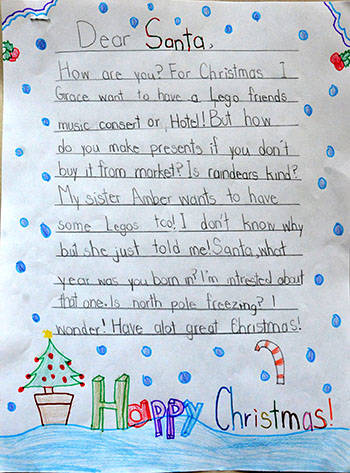 Dear Santa,
How are you? For Christmas I
Grace want to have a Lego friends
music consert or, Hotel! But how
do you make presents if you don't
buy it from market? Is raindears kind?
My sister Amber wants to have
some Legos too! I don't know why
but she just told me! Santa, what
year was you born in? I'm intrested about
that one. Is north pole freezing? I
wonder! Have alot great Christmas!
Happy Christmas!